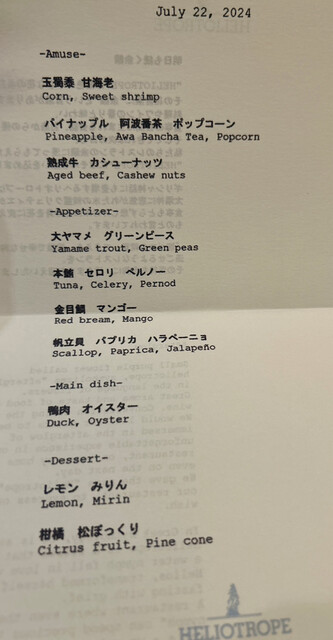 July 22, 2024
-Amuse-
玉蜀黍 甘海老
Corn, Sweet shrimp
パイナップル 阿波番茶 ポップコーン
Pineapple, Awa Bancha Tea, Popcorn
熟成牛 カシューナッツ
Aged beef, Cashew nuts
-Appetizer-
大ヤマメ グリーンピース
Yamame trout, Green peas
本鮪 セロリ ペルノー
Tuna, Celery, Pernod
金目鯛 マンゴー
Red bream, Mango
帆立貝 パプリカ ハラペーニョ
Scallop, Paprica, Jalapeño
-Main dish-
鴨肉 オイスター
Duck, Oyster
-Dessert-
レモン みりん
Lemon, Mirin
柑橘 松ぼっくり
Citrus fruit, Pine cone
HELIOTROPE